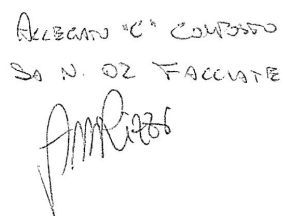 ALLEGATO "C" COMPOSTO
DA N. 02 FACCIATE